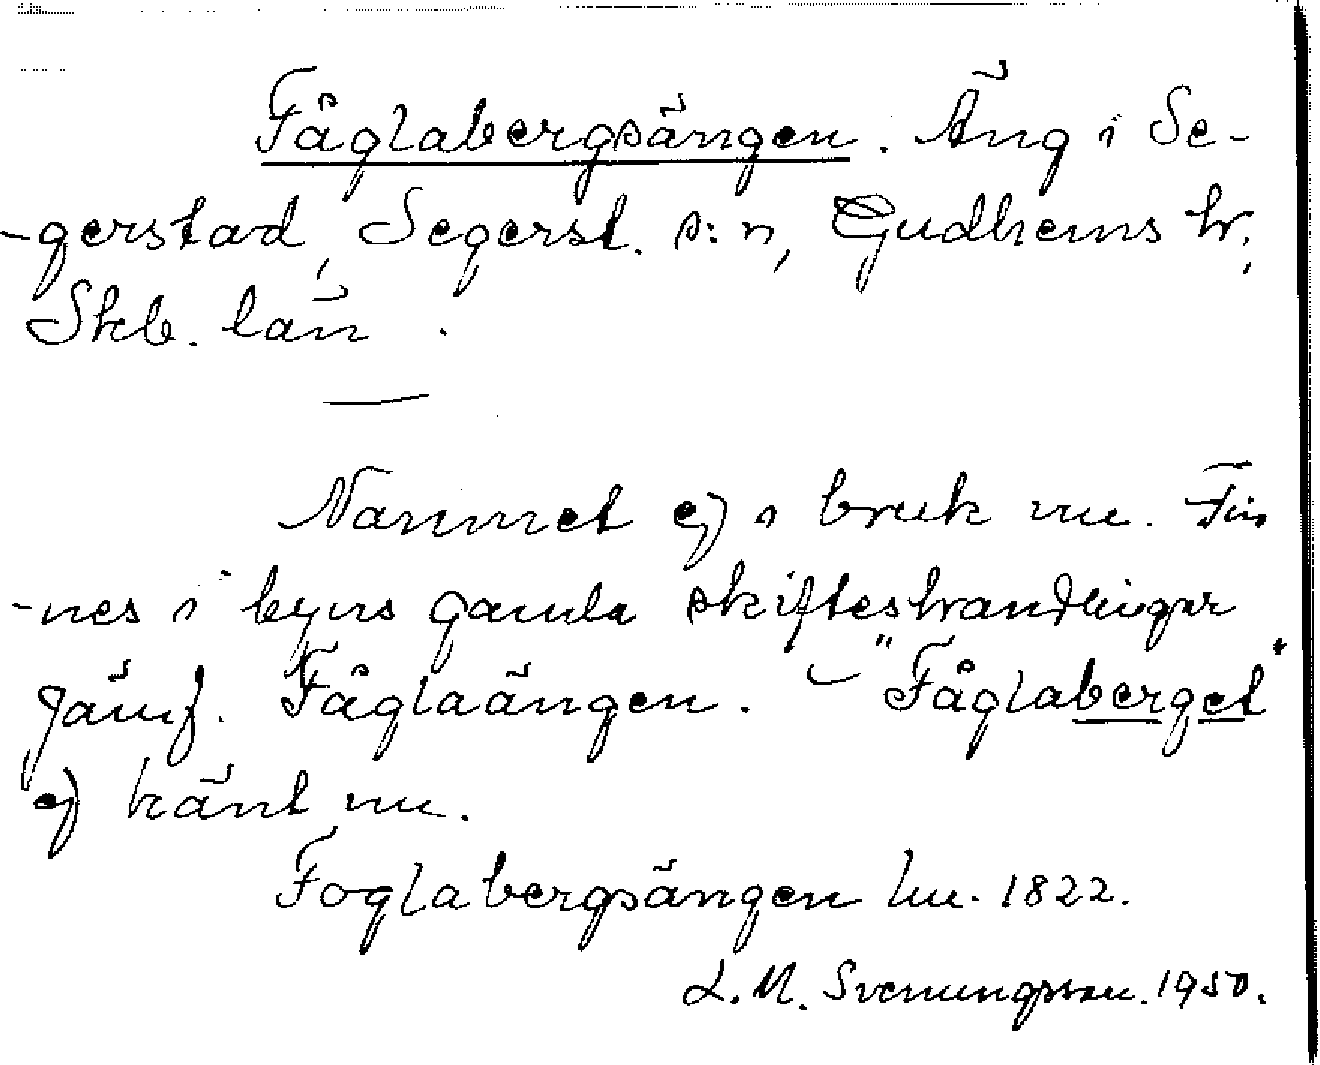 Fåglabergsängen. Äng i Se-
-gerstad, Segerst. s:n, Gudhems hr,
Skb. län.
—
Namnet ej i bruk nu. Fin
-nes i byns gamla skifteshandlingar
Jämf. Fåglaängen. – "Fåglaberget"
ej känt nu.
Foglabergsängen hm. 1822.
L. M. Svenungsson. 1950.